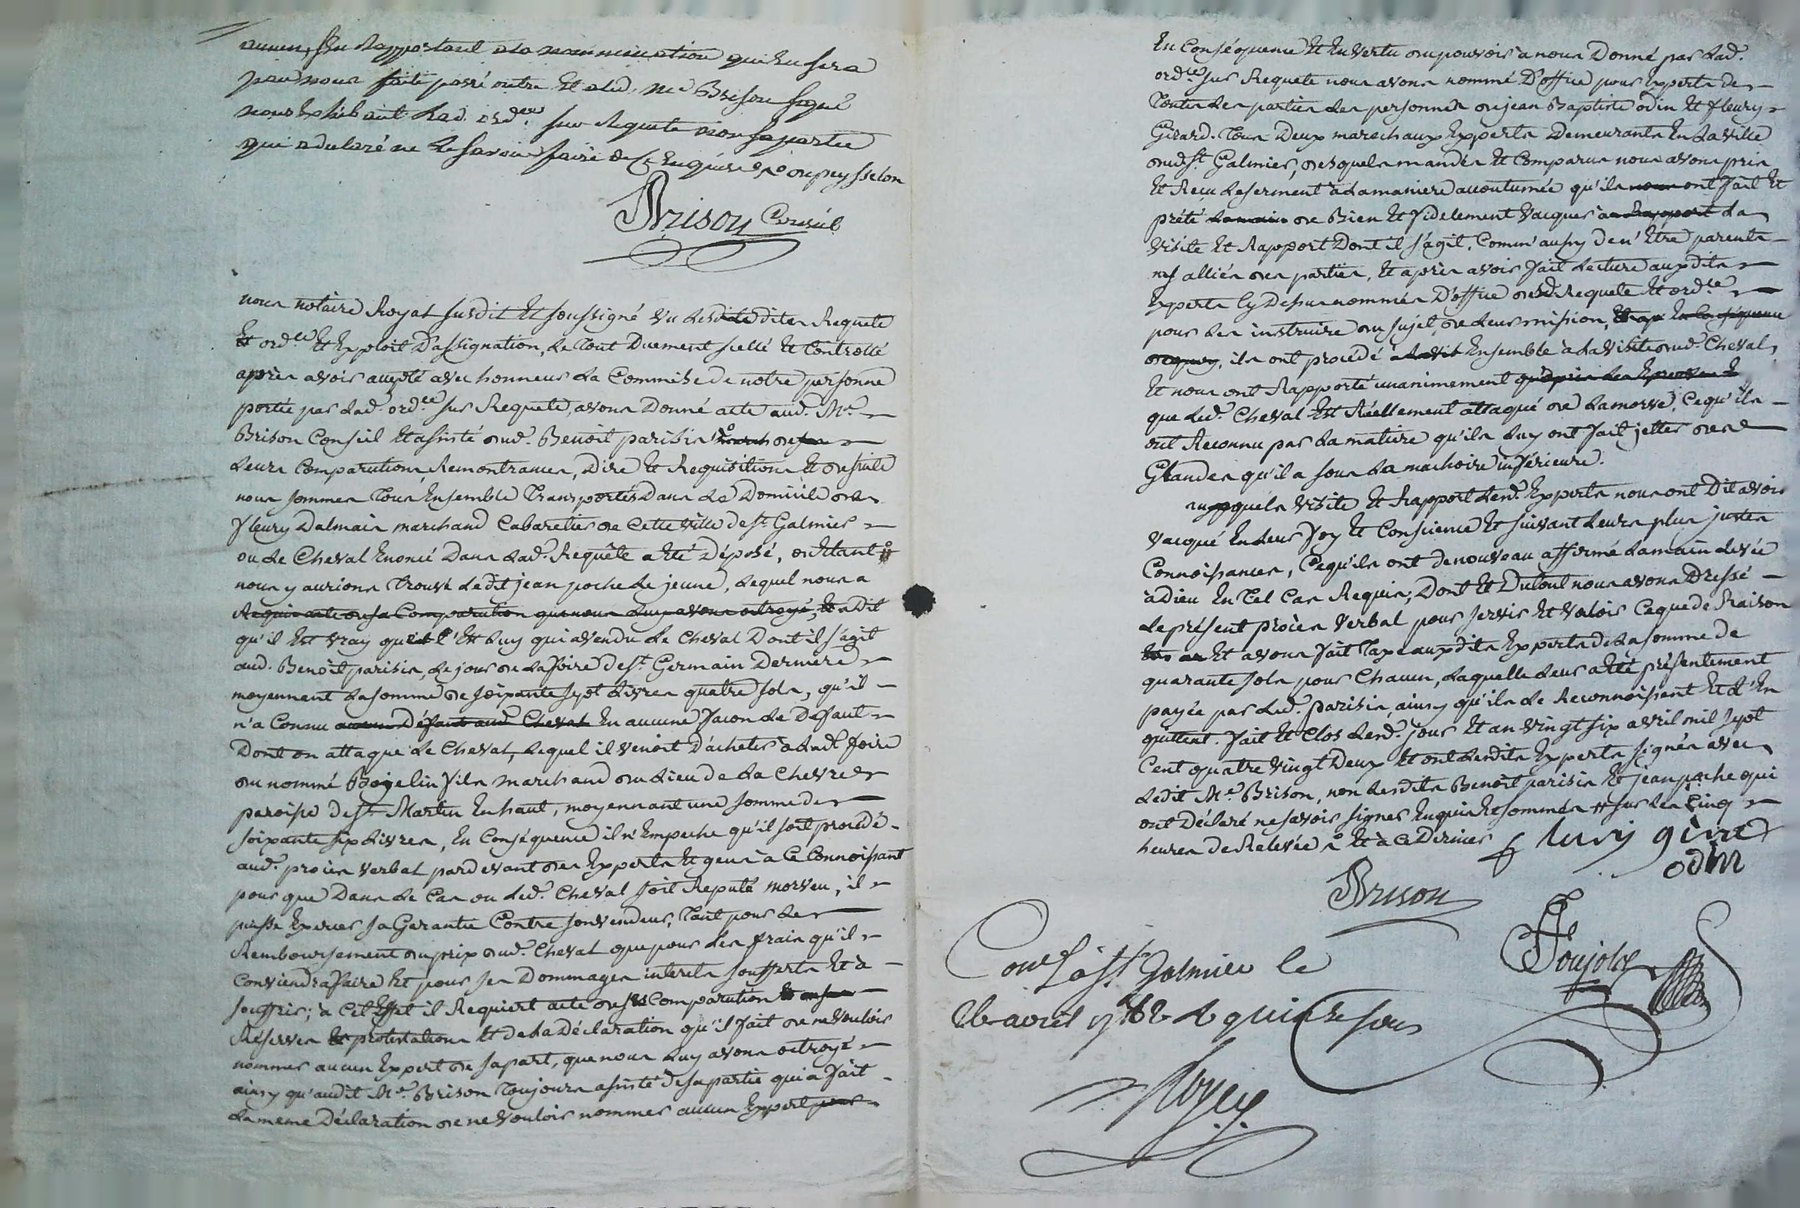 aucun, s'en Rapportant a la nommination qui en sera
par nous faite passé outre Et a led. Me Brison signé
nous Exhibant Lad. ordce sur Requete non sa partie
qui a declaré ne le savoir faire de ce Enquise
Brison Conseil
nous notaire Royal susdit Et soussigné vu lesdites Requete
ordce Et Exploit D'assignation, Le Tout Duement scellé Et Controllé
après avoir accepté avec honneur La Commise de notre personne
portée par Lad. ordce sur Requete, avons Donné acte aud. Me
Brison Conseil Et assisté dud. Benoit parisis
Leurs Comparutions, Remontrances, Dire Et Requisitions Et de suite
nous sommes Tous Ensemble Transportés Dans Le Domicile de
fleury Dalmais marchand Cabaretier de Cette ville de St. Galmier
ou Le Cheval Enoncé Dans Lad. Requête a Eté Déposé, ou Etant
nous y aurions trouvé Ledit jean poche Le jeune, Lequel nous a
Requis acte de sa Comparution que nous Luy avons octroyé, Et a Dit
qu'il Est vray que c'Est Luy qui a vendu Le Cheval Dont il s'agit
aud. Benoit parisis Le jour de La foire de St. Germain Derniere
moyennant La somme de soixante sept Livres quatre sols, qu'il
n'a Connu aucun Défaut aud. Cheval En aucune facon Le Défaut
Dont on attaque Le Cheval, Lequel il venoit D'acheter a Lad. foire
du nommé Bogelin fils marchand du Lieu de La Chevre
paroisse de St. Martin En haut, moyennant une somme de
soixante six Livres, En Conséquence il n'Empeche qu'il soit procédé
aud. procès verbal pardevant des Experts Et gens a Ce Connoissant
pour que Dans Le Cas ou Led. Cheval soit Reputé morveu, il
puisse Exercer sa Garantie Contre son vendeur, Tant pour Le
Remboursement du prix dud. Cheval que pour Les frais qu'il
Conviendra faire Et pour ses Dommages interets soufferts Et à
souffrir; à Cet Effet il Requiert acte de sa Comparution
Réserves Et protestations Et de sa Déclaration qu'il fait de ne vouloir
nommer aucun Expert de sa part, que nous Luy avons octroyé
ainsy qu'audit Me. Brison Toujours assisté de sa partie qui a fait
La meme Déclaration de ne vouloir nommer aucun Expert
En Conséquence Et En vertu du pouvoir à nous Donné par Lad.
ordce sur Requete nous avons nommé D'office pour Experts de
Toutes Les parties Les personnes de jean Baptiste odin Et fleury
Girard. Tous Deux marechaux Experts Demeurants En La ville
dud. St. Galmier, desquels mandés Et Comparus nous avons pris
Et Reçu Le serment à La maniere accoutumée qu'ils ont fait Et
prêté La main de Bien Et fidelement vacquer au Rapport La
visite Et Rapport Dont il s'agit. Comm'aussy de n'Etre parents
ny alliés des parties, Et après avoir fait Lecture auxdits
Experts Cy Dessus nommés D'office desd. Requete Et ordce
pour Les instruire du sujet de Leur mission,
ils ont procédé Ensemble à La visite dud. Cheval,
Et nous ont Rapporté unanimement
que Led. Cheval Est Réellement attaqué de La morve, Ce qu'ils
ont Reconnu par La matiere qu'ils Luy ont fait jetter
Glandes qu'il a sous La machoire inférieure.
auxquels visite Et Rapport Lesd. Experts nous ont Dit avoir
vacqué En Leur foy Et Conscience Et suivant Leurs plus justes
Connoissances, Ce qu'ils ont de nouveau affirmé La main Levée
à Dieu En Tel Cas Requis; Dont Et Du tout nous avons Dressé
Le présent procès verbal pour servir Et valoir Ce que de Raison
Et avons fait Taxe auxdits Experts de La somme de
quarante sols pour Chacun, Laquelle Leur a Eté présentement
payée par Led. parisis ainsy qu'ils Le Reconnoissent Et L'En
quittent. fait Et Clos Lesd. jour Et an vingt six avril mil sept
Cent quatre vingt Deux Et ont Lesdits Experts signés avec
Ledit Me. Brison, non Lesdits Benoit parisis Et jean poche qui
ont Déclaré ne savoir signer Enquis Et sommés sur Les Cinq
heures de Relevée
fleury girard
odin
Brison
Conlé à St. Galmier le
26 avril 1782 R quinze sous